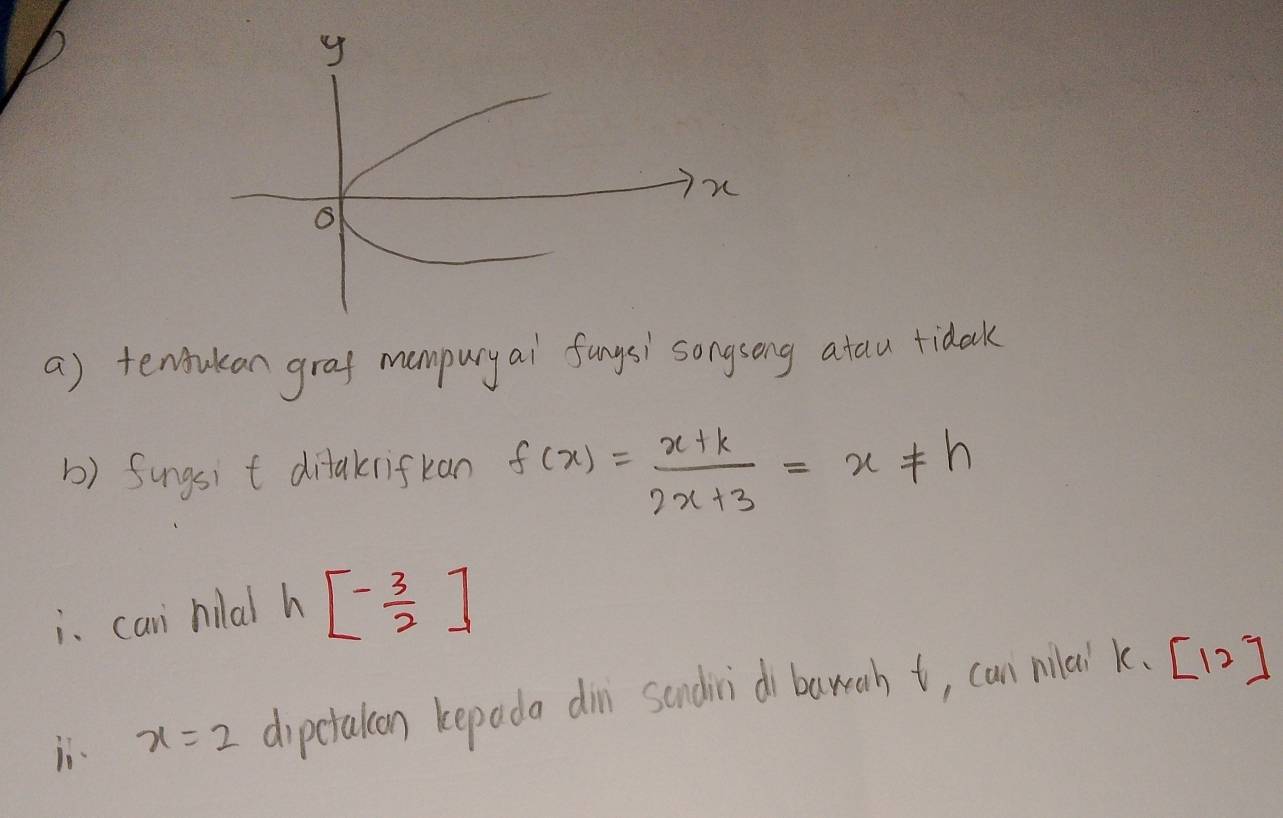 y
x
0
a) tentukan graf mempunyai fungsi songsang atau tidak
b) fungsi f ditakrifkan f(x) = (x+k)/(2x+3) = x ≠ h
i. cari nilai h [-3/2]
ii. x = 2 dipetakan kepada diri sendiri di bawah f, cari nilai k. [12]